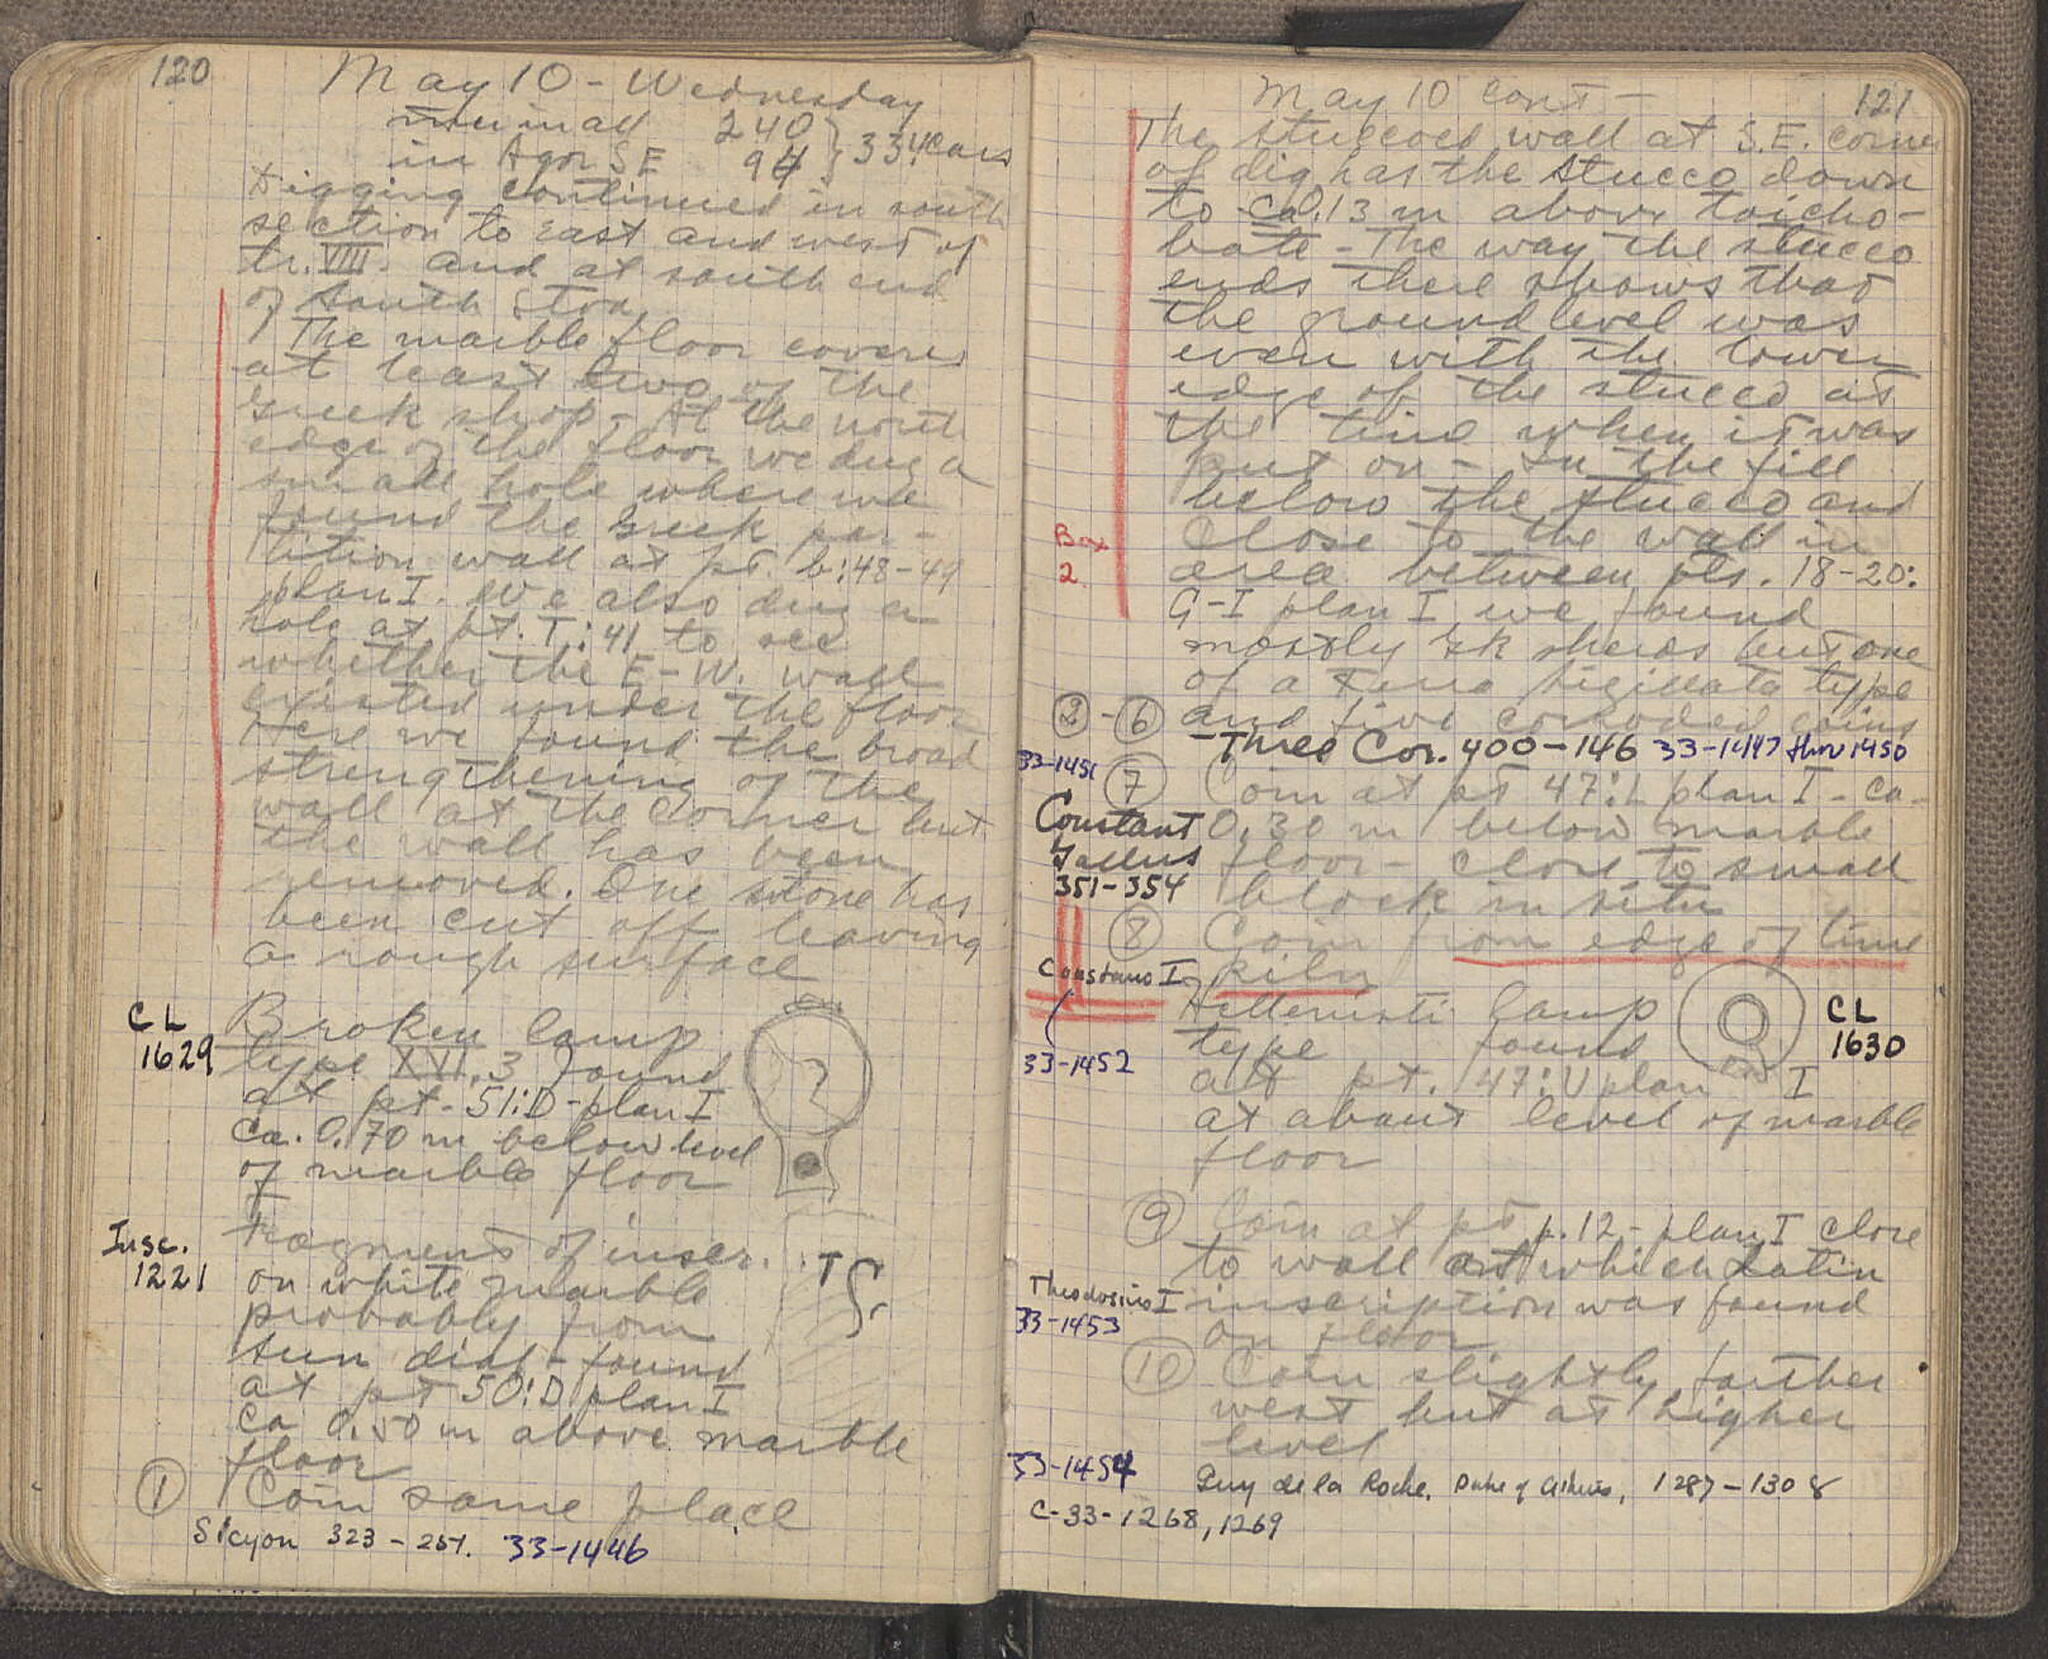 120
May 10 - Wednesday
in all 240 } 334 cars
in Agor SE 94
Digging continued in south
section to east and west of
tr. VIII. and at south end
of South Stoa
The marble floor covers
at least two of the
Greek shop - At the north
edge of the floor we dug a
small hole where we
found the Greek par-
tition wall at pt. b:48-49
plan I. We also dug a
hole at pt. T:41 to see
whether the E-W. wall
existed under the floor
Here we found the broad
strengthening of the
wall at the corner but
the wall has been
removed. One stone has
been cut off leaving
a rough surface
CL
1629
Broken lamp
type XVI, 3 found
at pt - 51:D - plan I
Ca. 0.70 m below level
of marble floor
Insc.
1221
Fragment of inscr.
on white marble
probably from
sun dial - found
at pt 50:D plan I
Ca 0.50 m above marble
floor
① Coin same place
Sicyon 323 - 251. 33-1446
May 10 cont - 121
The stuccoed wall at S.E. corner
of dig has the stucco down
to ca 0.13 m above toicho-
bate - The way the stucco
ends there shows that
the ground level was
even with the lower
edge of the stucco at
the time when it was
put on - In the fill
below the stucco and
Box
2
close to the wall in
area between pts. 18-20:
G-I plan I we found
mostly Gk sherds but one
of a Terra Sigillata type
② - ⑥ and five corroded coins
- Three Cor. 400-146 33-1447 thru 1450
33-1451
⑦ Coin at pt 47:L plan I - ca -
Constant
Gallus
351-354
0.30 m below marble
floor - close to small
block in situ
⑧ Coin from edge of lime
kiln
Constans I
33-1452
Hellenisti lamp
type found
at pt. 47:U plan I
at about level of marble
floor
CL
1630
⑨ Coin at pt p.12 - plan I close
to wall at which Latin
inscription was found
on floor
Theodosius I
33-1453
⑩ Coin slightly farther
west but at higher
level
33-1454 Guy de la Roche, Duke of Athens, 1287-1308
C-33-1268, 1269